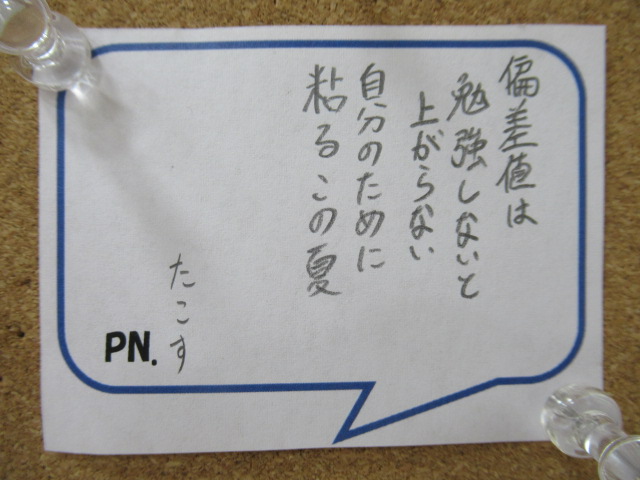 偏差値は
勉強しないと
上がらない
自分のために
粘るこの夏
PN. たこす